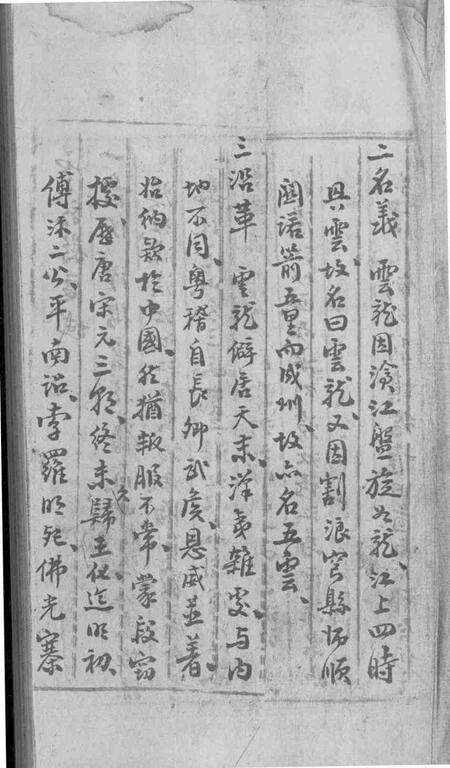 二名義　雲龍因滄江盤旋如龍、江上四時
興雲、故名曰雲龍、又因割浪穹縣師順
關諾箭五里而成州、故亦名五雲、
三沿革　雲龍僻居天末、漢夷雜處、与內
地不同、粵稽自長卿武侯、恩威並著、
始納欵於中國、然猶叛服不常、蒙段竊
據、歷唐宋元三朝、終未歸王化、迄明初、
傅沐二公、平南詔、李羅明死、佛光寨